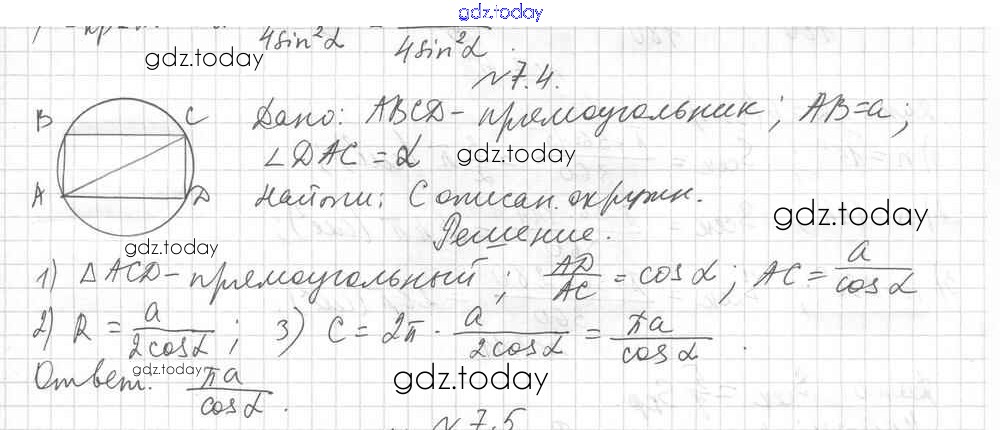 gdz.today
4sin²α = 4sin²α.
gdz.today
№7.4.
B C Дано: ABCD - прямоугольник; AB=a;
∠DAC = α gdz.today
A D Найти: C описан. окружн.
gdz.today
gdz.today Решение.
1) △ACD - прямоугольный; AD/AC = cosα; AC = a/cosα
2) R = a/2cosα; 3) C = 2π · a/2cosα = πa/cosα.
gdz.today
Ответ. πa/cosα.
gdz.today
№7.5